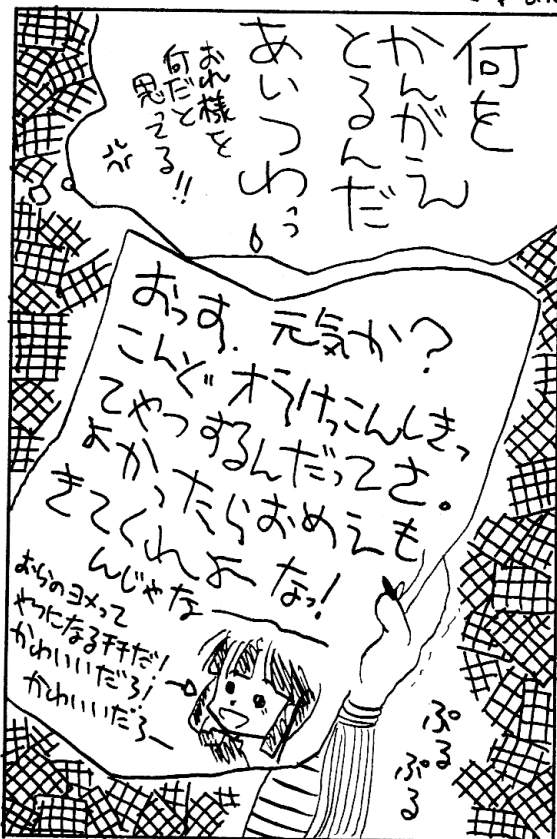 何を
かんがえ
とるんだ
あいつわっ
おれ様を
何だと
思ってる!!
おっす、元気か?
こんど オラけっこんしきっ
てやつするんだってさ。
よかったらおめえも
きてくれよなっ!
んじゃなー
おらのヨメって
やつになるチチだ!
かわいいだろ!
かわいいだろー
ぷる
ぷる